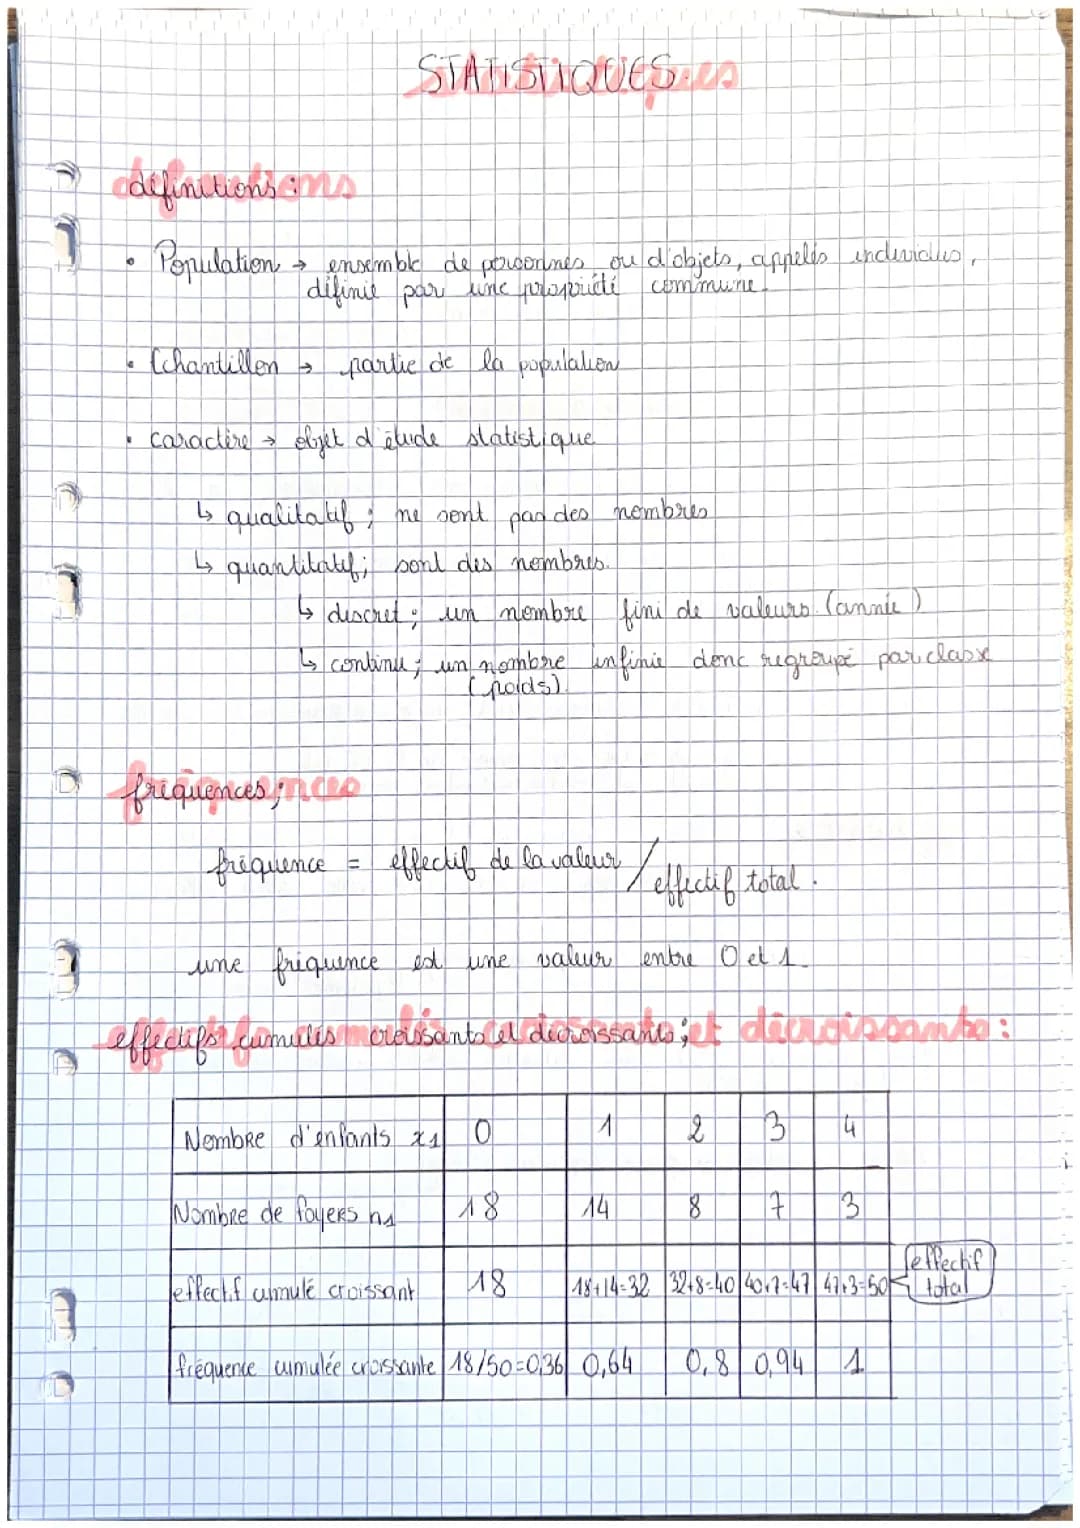 STATISTIQUES.
définitions :
• Population → ensemble de personnes ou d'objets, appelés individus,
définie par une propriété commune.
• Echantillon → partie de la population
• caractère → objet d'étude statistique
↳ qualitatif ; ne sont pas des nombres
↳ quantitatif ; sont des nombres.
↳ discret ; un nombre fini de valeurs. (année)
↳ continu ; un nombre infinie donc regroupé par classe
(poids).
fréquences ;
fréquence = effectif de la valeur / effectif total.
une fréquence est une valeur entre 0 et 1.
effectifs cumulés croissants et décroissants ; et décroissants :
Nombre d'enfants x1 0 1 2 3 4
Nombre de foyers n1 18 14 8 7 3
effectif cumulé croissant 18 18+14=32 32+8=40 40+7=47 47+3=50 effectif total
fréquence cumulée croissante 18/50=0,36 0,64 0,8 0,94 1